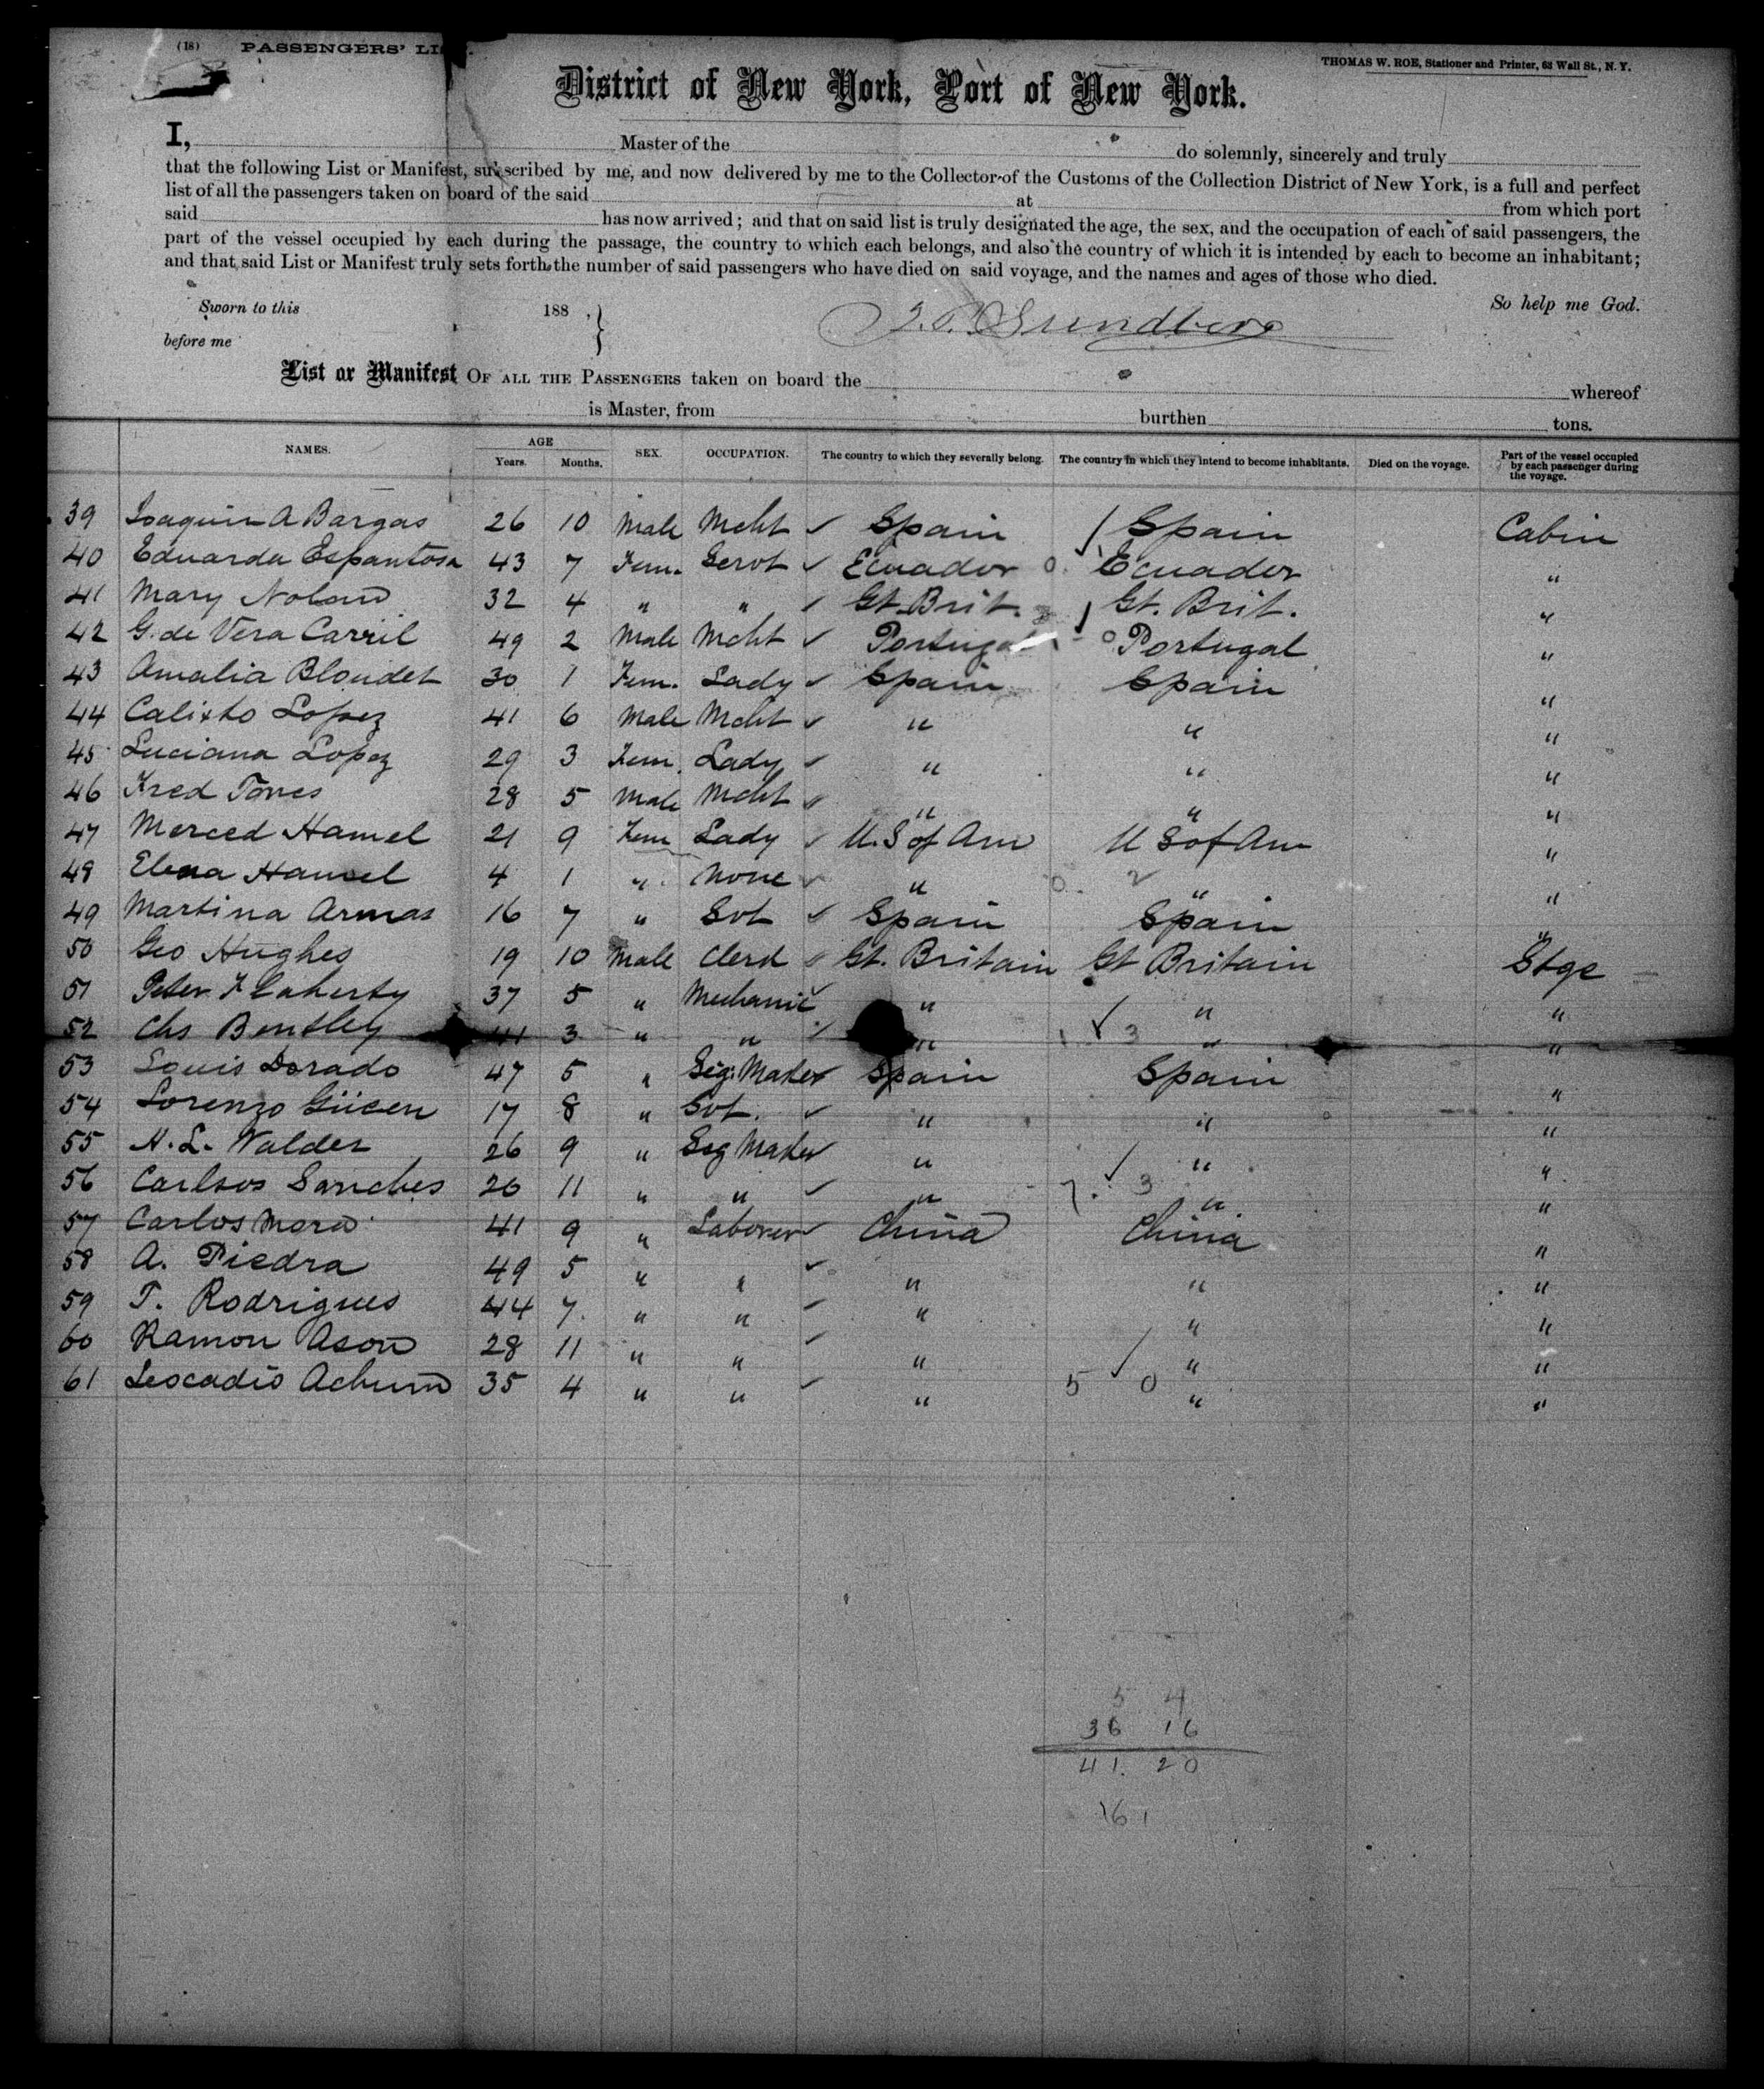 (18) PASSENGERS' LIST.
THOMAS W. ROE, Stationer and Printer, 63 Wall St., N. Y.
District of New York, Port of New York.
I, Master of the do solemnly, sincerely and truly
that the following List or Manifest, subscribed by me, and now delivered by me to the Collector of the Customs of the Collection District of New York, is a full and perfect
list of all the passengers taken on board of the said at from which port
said has now arrived; and that on said list is truly designated the age, the sex, and the occupation of each of said passengers, the
part of the vessel occupied by each during the passage, the country to which each belongs, and also the country of which it is intended by each to become an inhabitant;
and that said List or Manifest truly sets forth the number of said passengers who have died on said voyage, and the names and ages of those who died.
So help me God.
Sworn to this 188 ,
before me
Sundberg
List or Manifest OF ALL THE PASSENGERS taken on board the whereof
is Master, from burthen tons.
NAMES. AGE Years. Months. SEX. OCCUPATION. The country to which they severally belong. The country in which they intend to become inhabitants. Died on the voyage. Part of the vessel occupied by each passenger during the voyage.
39 Joaquin A Bargas 26 10 Male Mcht Spain Spain Cabin
40 Eduarda Espantosa 43 7 Fem. Servt Ecuador Ecuador "
41 Mary Noland 32 4 " " Gt. Brit. Gt. Brit. "
42 G. de Vera Carril 49 2 Male Mcht Portugal Portugal "
43 Amalia Bloudet 30 1 Fem. Lady Spain Spain "
44 Calixto Lopez 41 6 Male Mcht " " "
45 Luciana Lopez 29 3 Fem. Lady " " "
46 Fred Torres 28 5 Male Mcht " " "
47 Merced Hamel 21 9 Fem Lady U.S of Am U S of Am "
48 Elena Hamel 4 1 " None " " "
49 Martina Armas 16 7 " Svt Spain Spain "
50 Geo Hughes 19 10 Male Clerk Gt. Britain Gt Britain Stge
51 Peter Flaherty 37 5 " Mechanic " " "
52 Chs Bentley 41 3 " " " " "
53 Louis Dorado 47 5 " Seg. Maker Spain Spain "
54 Lorenzo Güicen 17 8 " Svt. " " "
55 H. L. Valdes 26 9 " Seg Maker " " "
56 Carlsos Sanches 26 11 " " " " "
57 Carlos Mora 41 9 " Laborer China China "
58 A. Piedra 49 5 " " " " "
59 T. Rodrigues 44 7 " " " " "
60 Ramon Ason 28 11 " " " " "
61 Leocadio Achum 35 4 " " " " "
5 0
5 4
36 16
41. 20
161